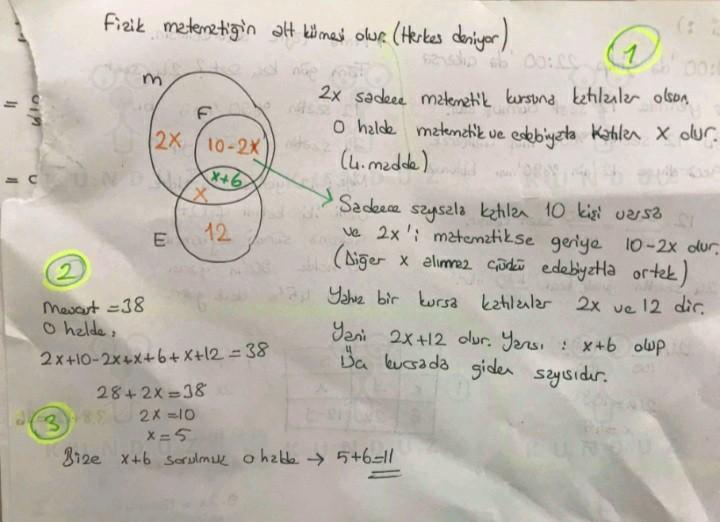 Fizik matematiğin alt kümesi olur. (Herkes deniyor)
1
M
F
2x
10-2x
x+6
x
E
12
2x sadece matematik kursuna katılanlar olsun,
O halde matematik ve edebiyata katılan x olur.
(4. madde)
Sadece sayısala katılan 10 kişi varsa
ve 2x'i matematikse geriye 10-2x olur.
(Diğer x alınmaz çünkü edebiyatla ortak)
Yalnız bir kursa katılanlar 2x ve 12 dir.
Yani 2x+12 olur. Yarısı : x+6 olup
Üç kursada giden sayısıdır.
2
Mevcut = 38
O halde;
2x+10-2x+x+6+x+12 = 38
28+2x=38
2x=10
x=5
3
Bize x+6 sorulmuş o halde → 5+6=11